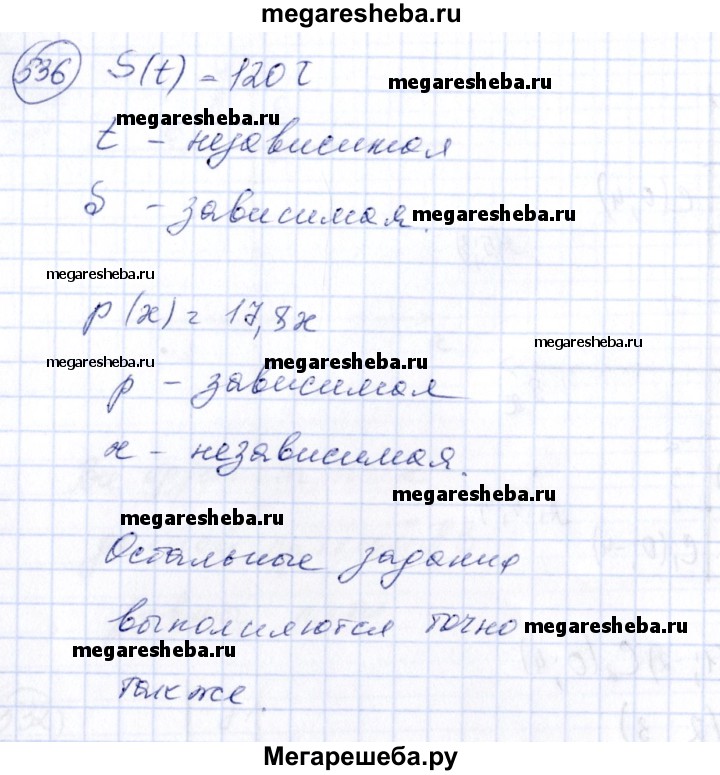 megaresheba.ru
536 S(t) = 120t
megaresheba.ru
megaresheba.ru
t – независимая
S – зависимая.
megaresheba.ru
megaresheba.ru
p(x) = 17,8x
megaresheba.ru
megaresheba.ru
megaresheba.ru
p – зависимая
x – независимая.
megaresheba.ru
megaresheba.ru
Остальные задания
выполняются точно
megaresheba.ru
megaresheba.ru
так же.
Мегарешеба.ру